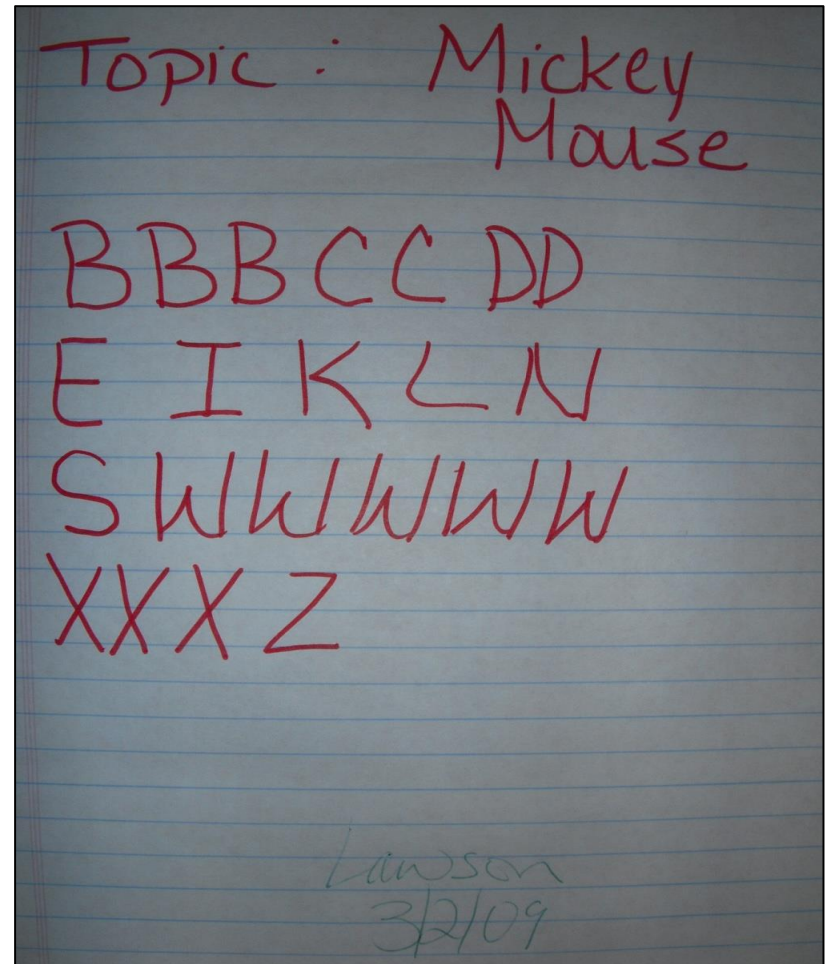 Topic : Mickey
Mouse
B B B C C D D
E I K L N
S W W W W W
X X X Z
Lawson
3/2/09